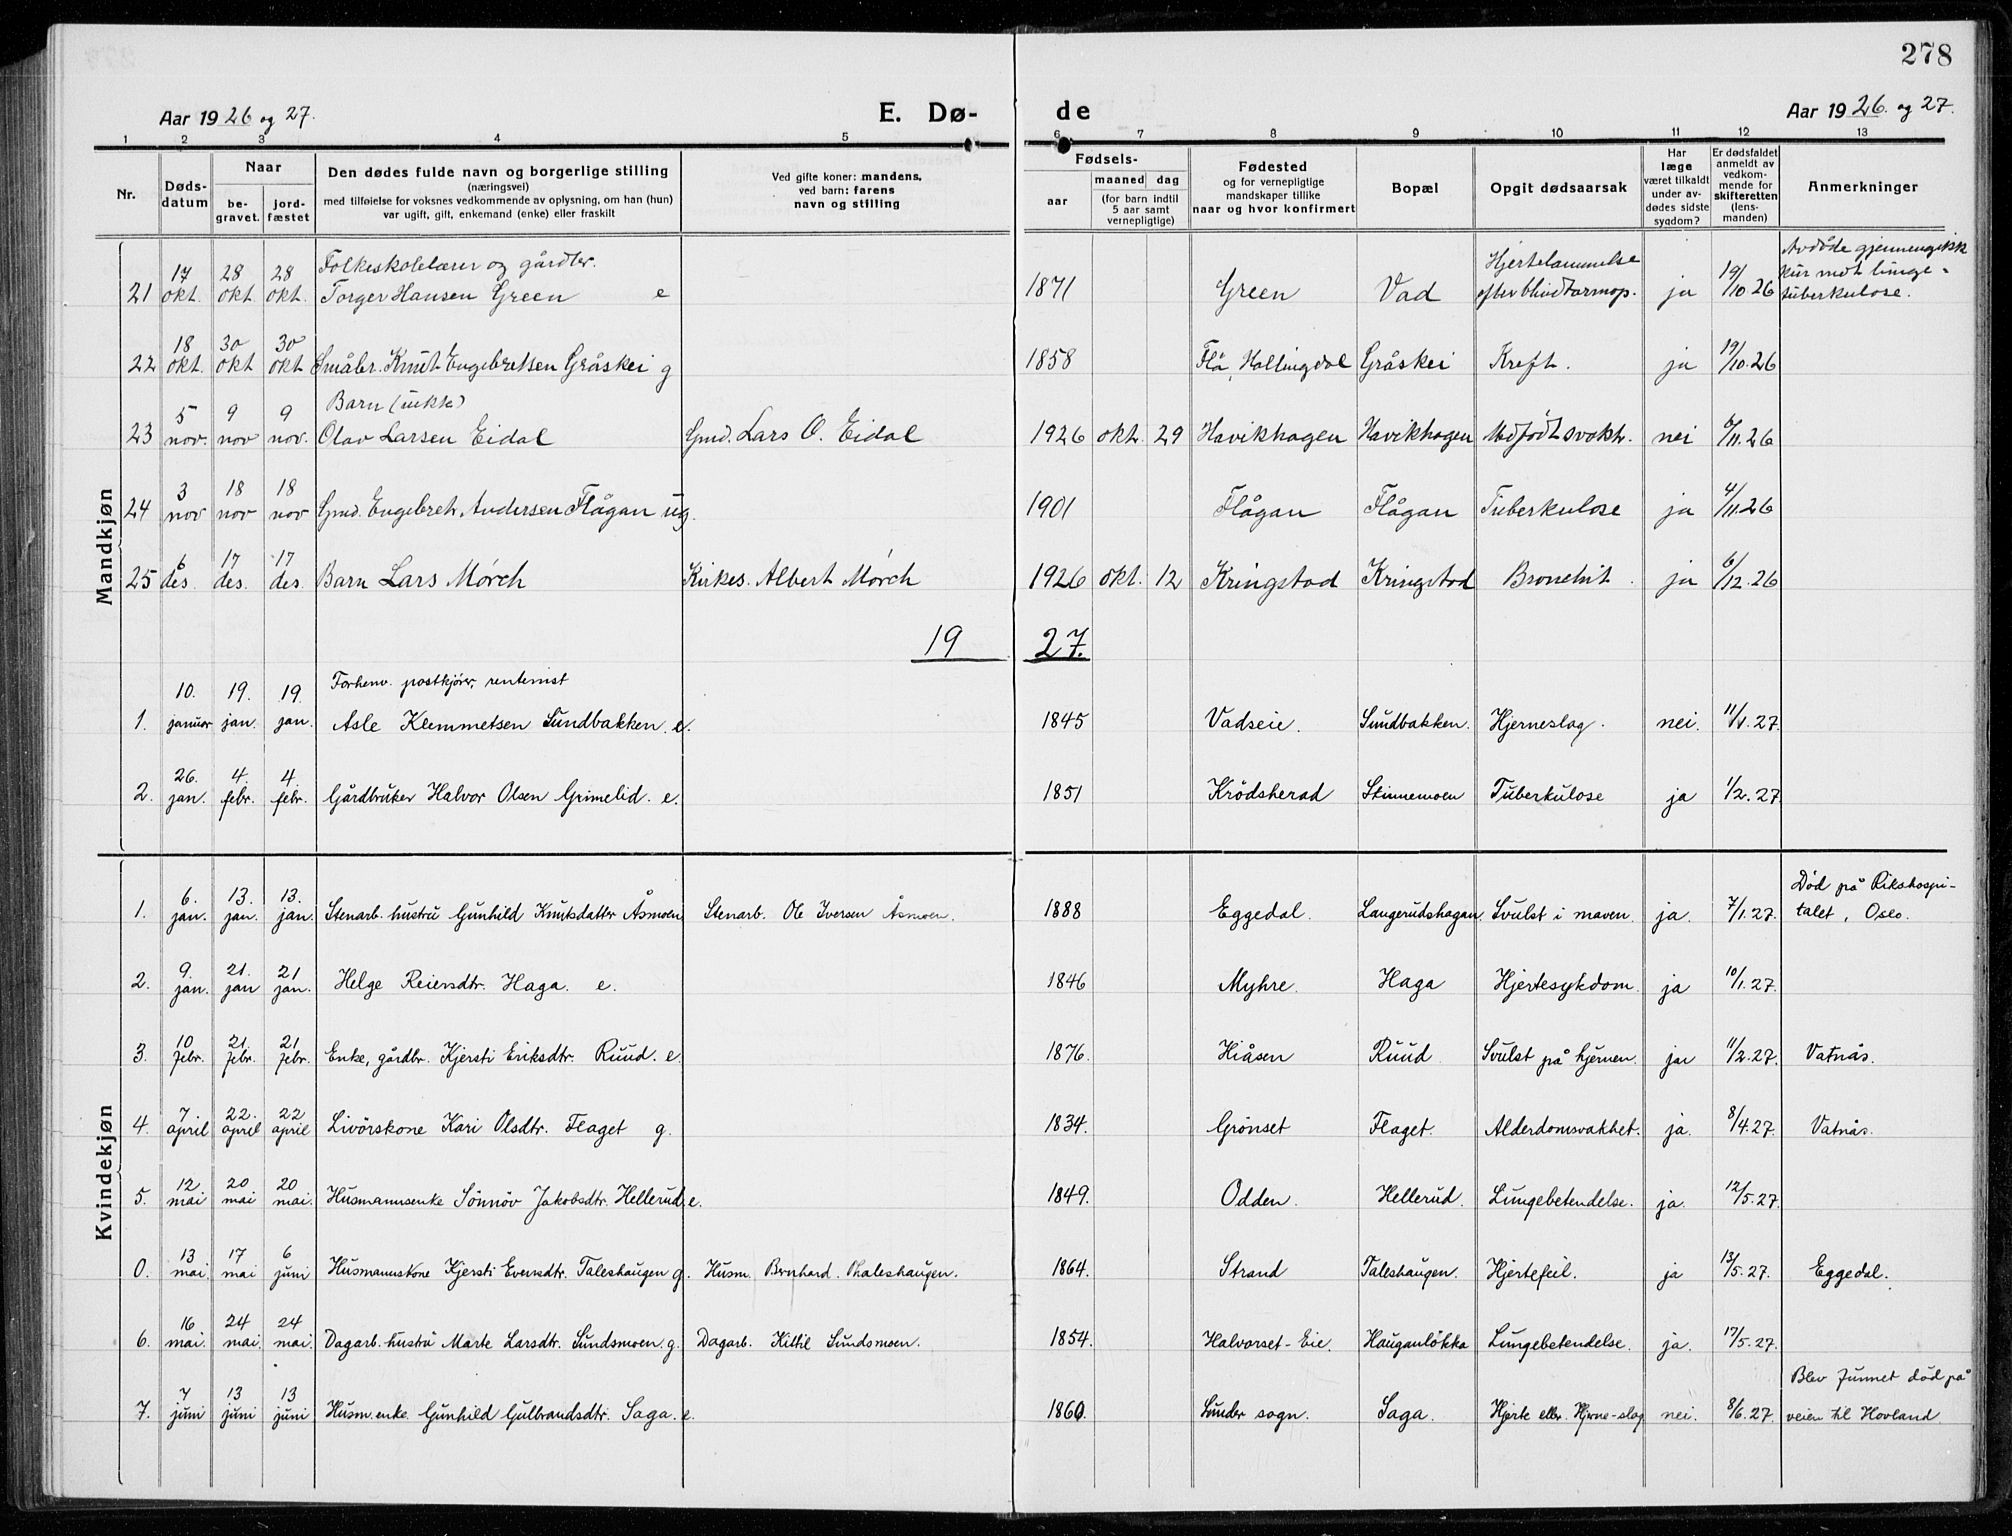 278
Aar 1926 og 27. E. Dø- de Aar 1926. og 27.
1 2 3 4 5 6 7 8 9 10 11 12 13
Nr. Døds-datum Naar be-gravet. jord-fæstet Den dødes fulde navn og borgerlige stilling (næringsvei) med tilføielse for voksnes vedkommende av oplysning, om han (hun) var ugift, gift, enkemand (enke) eller fraskilt Ved gifte koner: mandens, ved barn: farens navn og stilling Fødsels- aar maaned dag (for barn indtil 5 aar samt vernepligtige) Fødested og for vernepligtige mandskaper tillike naar og hvor konfirmert Bopæl Opgit dødsaarsak Har læge været tilkaldt under av-dødes sidste sygdom? Er dødsfaldet anmeldt av vedkom-mende for skifteretten (lens-manden) Anmerkninger
Mandkjøn
21 17 okt. 28 okt. 28 okt. Folkeskolelærer og gårdbr. Torger Hansen Green e 1871 Green Vad Hjertelammelse efter blindtarmop. ja 19/10 26 Avdøde gjennemgikk kur mot lunge-tuberkulose.
22 18 okt. 30 okt 30 okt Småbr. Knut Engebretsen Gråskei g 1858 Flå, Hallingdal Gråskei Kreft. ja 19/10.26
23 5 nov. 9 nov 9 nov. Barn (uekte) Olav Larsen Eidal Gmd. Lars O. Eidal 1926 okt. 29 Havikhagen Havikhagen Medfødt svakh. nei 6/11.26
24 3 nov 18 nov 18 nov Gmd. Engebreth Andersen Flågan ug. 1901 Flågan Flågan Tuberkulose ja 4/11.26
25 6 des. 17 des. 17 des. Barn Lars Mørch Kirkes. Albert Mørch 1926 okt. 12 Kringstad Kringstad Bronchit. ja 6/12.26
19 27.
1. 10. januar 19. jan. 19. jan. Forhenv. postkjører, rentenist Asle Klemmetsen Sundbakken. e. 1845 Vadseie. Sundbakken. Hjerneslag. nei. 11/1.27.
2. 26. jan. 4. febr. 4. febr. Gårdbruker Halvor Olsen Grimelid. e. 1851 Krödsherad Stinnemoen Tuberkulose ja 1/2.27.
Kvindekjøn
1. 6. jan. 13. jan. 13. jan. Stenarb. hustru Gunhild Knutsdatter Åsmoen Stenarb. Ole Iversen Åsmoen. 1888 Eggedal. Langerudshagan. Svulst i maven. ja. 7/1.27. Död på Rikshospi-talet, Oslo.
2. 9. jan. 21. jan 21 jan. Helge Reiersdtr. Haga. e. 1846 Myhre. Haga Hjertesykdom. ja 10/1.27.
3. 10 febr. 21. febr. 21 febr. Enke, gårdbr. Kjersti Eriksdtr. Ruud. e. 1876. Hiåsen Ruud. Svulst på hjernen. ja 11/2.27. Vatnås.
4. 7 april 22. april 22 april Livörskone Kari Olsdtr. Flaget g. 1834. Grönset Flaget. Alderdomsvakhet. ja. 8/4.27. Vatnås.
5. 12 mai 20 mai 20 mai. Husmannsenke Sönnöv Jakobsdtr. Hellerud. e. 1849. Odden. Hellerud. Lungebetendelse. ja. 12/5.27.
0. 13 mai. 17 mai 6 juni Husmannskone Kjersti Evensdtr. Taleshaugen g. Husm. Bernhard. Thaleshaugen. 1864. Strand Taleshaugen. Hjertefeil. ja 13/5.27. Eggedal.
6. 16 mai. 24 mai. 24 mai. Dagarb. hustru Marte Larsdtr. Sundsmoen. g. Dagarb. Kittil Sundsmoen. 1854. Halvorset-Eie. Hauganlökka Lungebetendelse. ja. 17/5.27.
7. 7 juni 13 juni 13 juni Husm. enke Gunhild Gulbrandsdtr. Saga. e. 1860. Lunder sogn. Saga. Hjerte eller Hjerne-slag nei. 8/6.27. Blev funnet död på veien til Hovland.